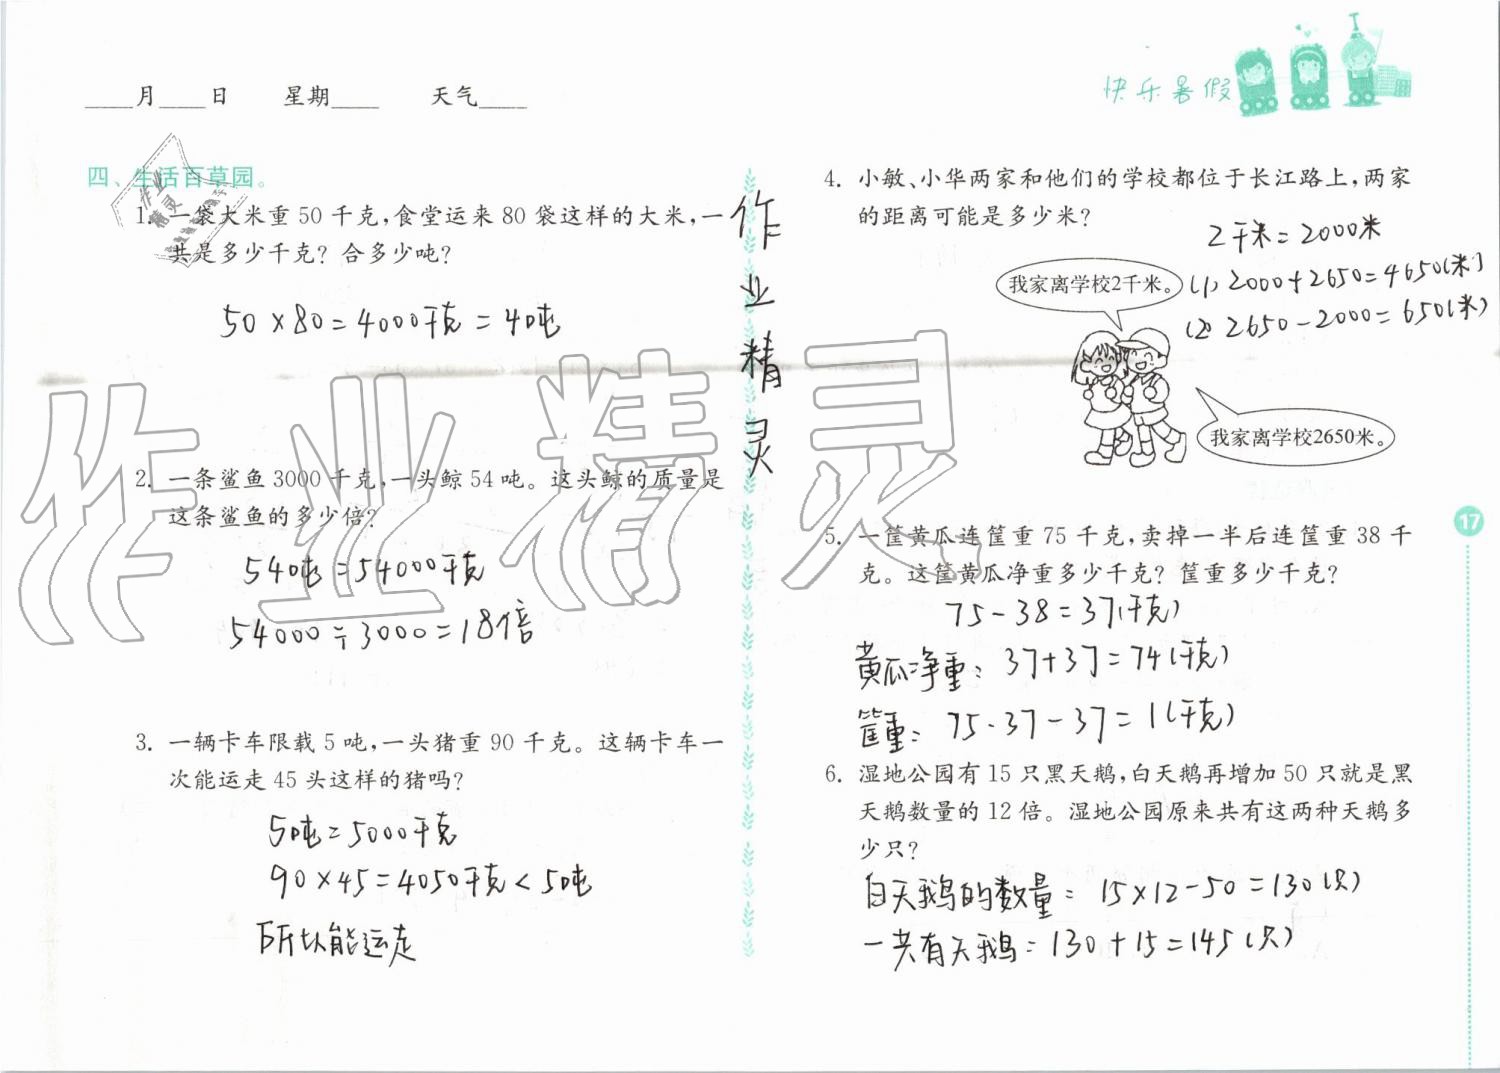 ____月____日 星期____ 天气____
快乐暑假
四、生活百草园。
1. 一袋大米重 50 千克,食堂运来 80 袋这样的大米,一
共是多少千克? 合多少吨?
50×80=4000千克=4吨
2. 一条鲨鱼 3000 千克,一头鲸 54 吨。这头鲸的质量是
这条鲨鱼的多少倍?
54吨=54000千克
54000÷3000=18倍
3. 一辆卡车限载 5 吨,一头猪重 90 千克。这辆卡车一
次能运走 45 头这样的猪吗?
5吨=5000千克
90×45=4050千克<5吨
所以能运走
作业精灵
作业精灵
4. 小敏、小华两家和他们的学校都位于长江路上,两家
的距离可能是多少米?
2千米=2000米
我家离学校2千米。
(1) 2000+2650=4650(米)
(2) 2650-2000=650(米)
我家离学校2650米。
17
5. 一筐黄瓜连筐重 75 千克,卖掉一半后连筐重 38 千
克。这筐黄瓜净重多少千克? 筐重多少千克?
75-38=37(千克)
黄瓜净重: 37+37=74(千克)
筐重: 75-37-37=1(千克)
6. 湿地公园有 15 只黑天鹅,白天鹅再增加 50 只就是黑
天鹅数量的 12 倍。湿地公园原来共有这两种天鹅多
少只?
白天鹅的数量: 15×12-50=130(只)
一共有天鹅: 130+15=145(只)